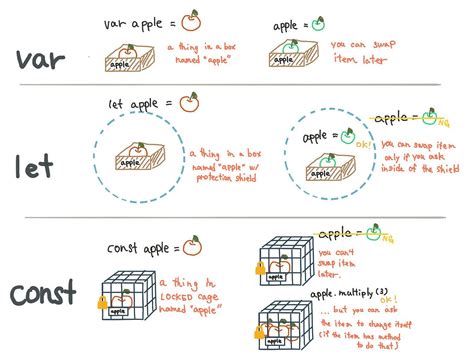 var
var apple =
a thing in a box
named "apple"
apple
apple =
you can swap
item later
apple
let
let apple =
a thing in a box
named "apple" w/
protection shield
apple
apple =
NG
apple =
OK!
you can swap item
only if you ask
inside of the shield
apple
const
const apple =
a thing in
LOCKED cage
named "apple"
apple
apple =
NG
you can't
swap item
later.
apple
apple.multiply(3)
OK!
... but you can ask
the item to change itself
(if the item has method
to do that)
apple